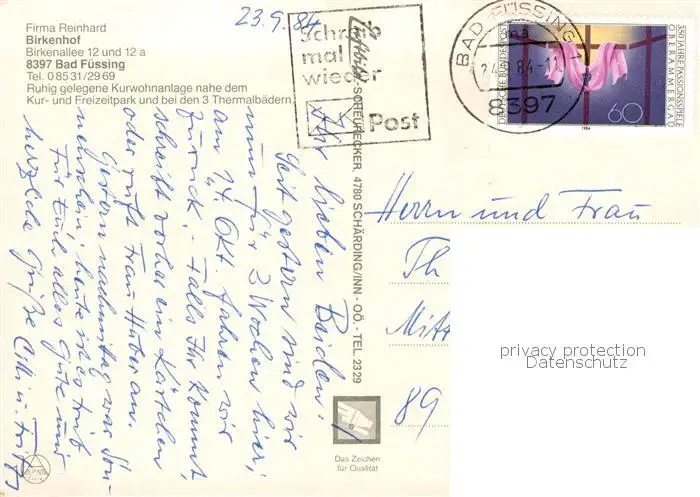 Firma Reinhard
Birkenhof
Birkenallee 12 und 12 a
8397 Bad Füssing
Tel. 0 85 31/29 69
Ruhig gelegene Kurwohnanlage nahe dem
Kur- und Freizeitpark und bei den 3 Thermalbädern.
23.9.84
Schreib
mal
wieder
Post
BAD FÜSSING 1
24.9.84-11
8397
DEUTSCHE BUNDESPOST
350 JAHRE PASSIONSSPIELE
OBERAMMERGAU
60
1984
Luftbild SCHEURECKER, 4780 SCHÄRDING/INN - OÖ. - TEL. 2329
Ihr lieben Beiden!
Seit gestern sind wir
nun für 3 Wochen hier,
am 14. Okt. fahren wir
zurück. - Falls Ihr kommt,
schreibt vorher ein Kärtchen
oder ruft Frau Huber an.
Gestern nachmittag war Son-
nenschein, heute ist es trüb
Für Euch alles Gute und
herzliche Grüße
Herrn und Frau
Th
Mitt
89
privacy protection
Datenschutz
Das Zeichen
für Qualität